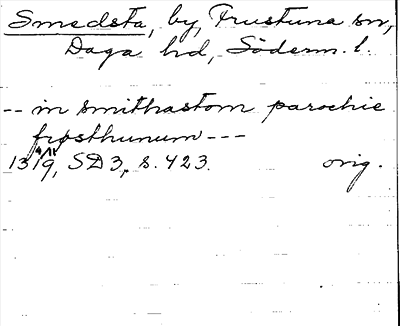 Smedsta, by, Frustuna sn,
Daga hd, Söderm. l.
-- in smithastom parochie
frøsthunum ---
1319, SD 3, s. 423. orig.